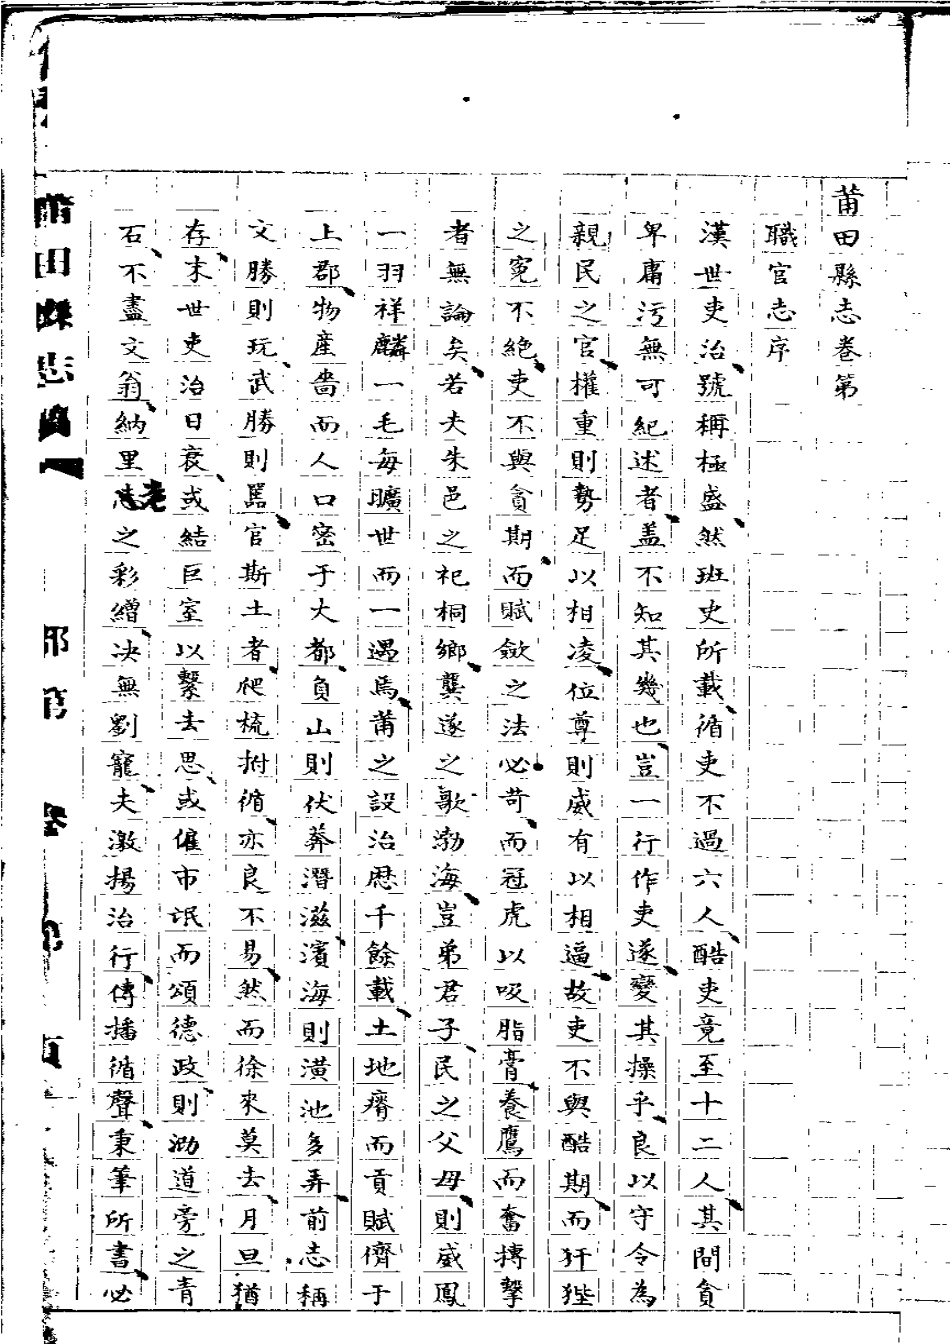 莆田縣志卷第
職官志序
漢世吏治號稱極盛然班史所載循吏不過六人酷吏竟至十二人其間貪
卑庸污無可紀述者蓋不知其幾也豈一行作吏遂變其操乎良以守令為
親民之官權重則勢足以相凌位尊則威有以相逼故吏不與酷期而犴狴
之冤不絕吏不與貪期而賦斂之法必苛而冠虎以吸脂膏養鷹而奮搏擊
者無論矣若夫朱邑之祀桐鄉龔遂之歌渤海豈弟君子民之父母則威鳳
一羽祥麟一毛每曠世而一遇焉莆之設治歷千餘載土地瘠而貢賦儕于
上郡物產嗇而人口密于大都負山則伏莽潛滋濱海則潢池多弄前志稱
文勝則玩武勝則嚚官斯土者爬梳拊循亦良不易然而徐來莫去月旦猶
存末世吏治日衰或結巨室以繫去思或僱市氓而頌德政則泐道旁之青
石不盡文翁納里老之彩繒決無劉寵夫激揚治行傳播循聲秉筆所書必
莆田縣志
部第